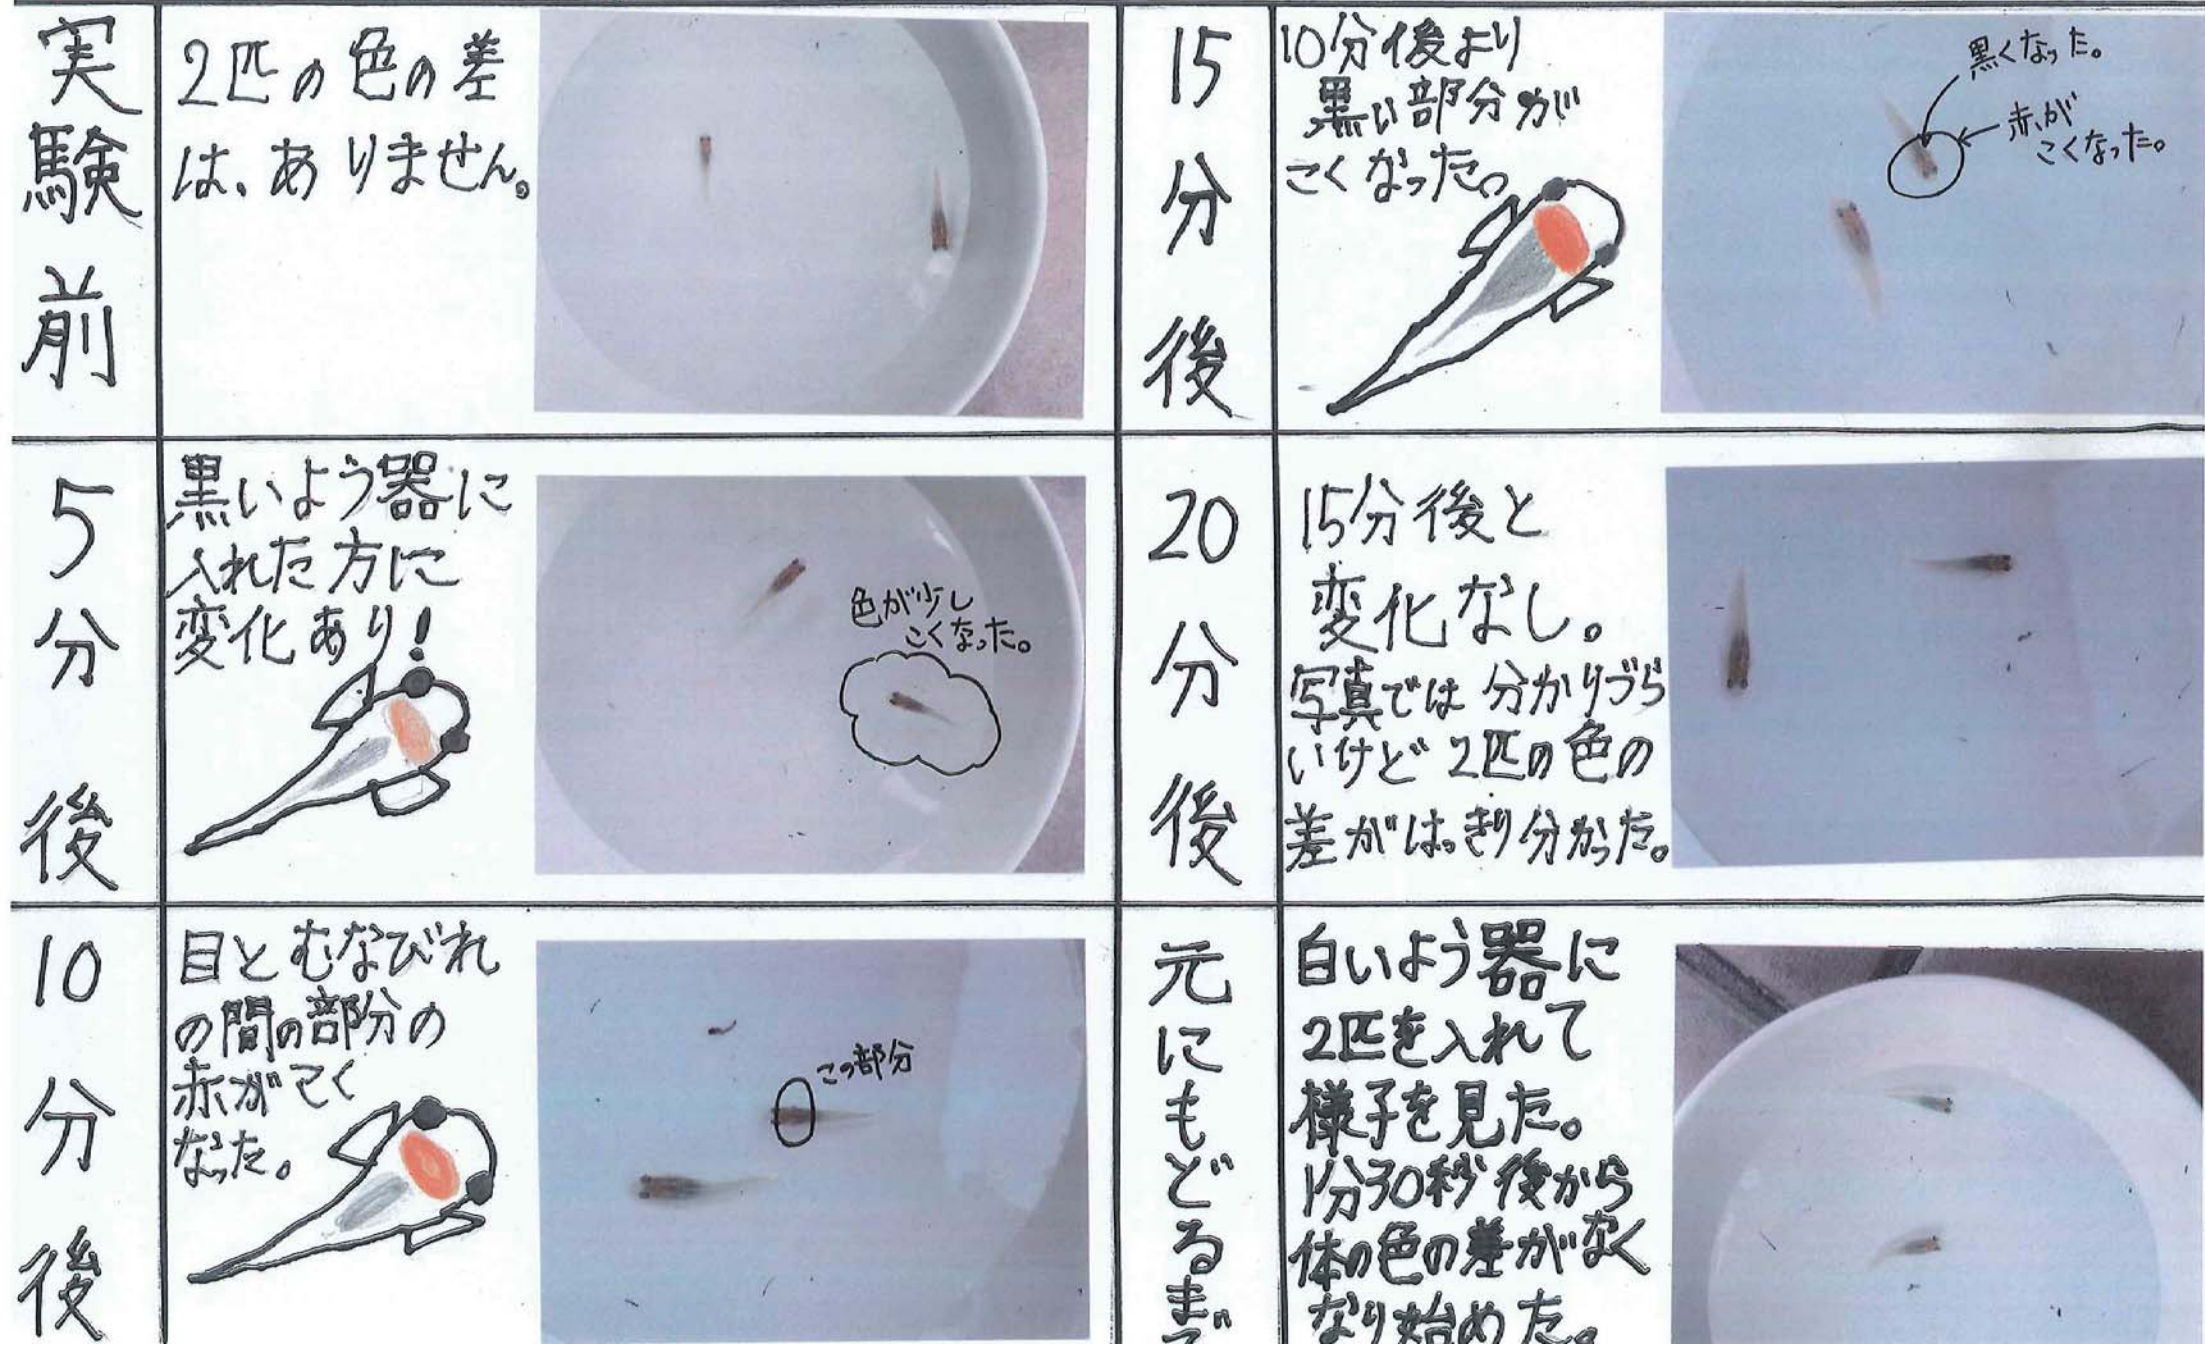 実験前
2匹の色の差
は、ありません。
5分後
黒いよう器に
入れた方に
変化あり!
色が少し
こくなった。
10分後
目とむなびれ
の間の部分の
赤がこく
なった。
この部分
15分後
10分後より
黒い部分が
こくなった。
黒くなった。
赤が
こくなった。
20分後
15分後と
変化なし。
写真では分かりづら
いけど2匹の色の
差がはっきり分かった。
元にもどるまで
白いよう器に
2匹を入れて
様子を見た。
1分30秒後から
体の色の差がなく
なり始めた。